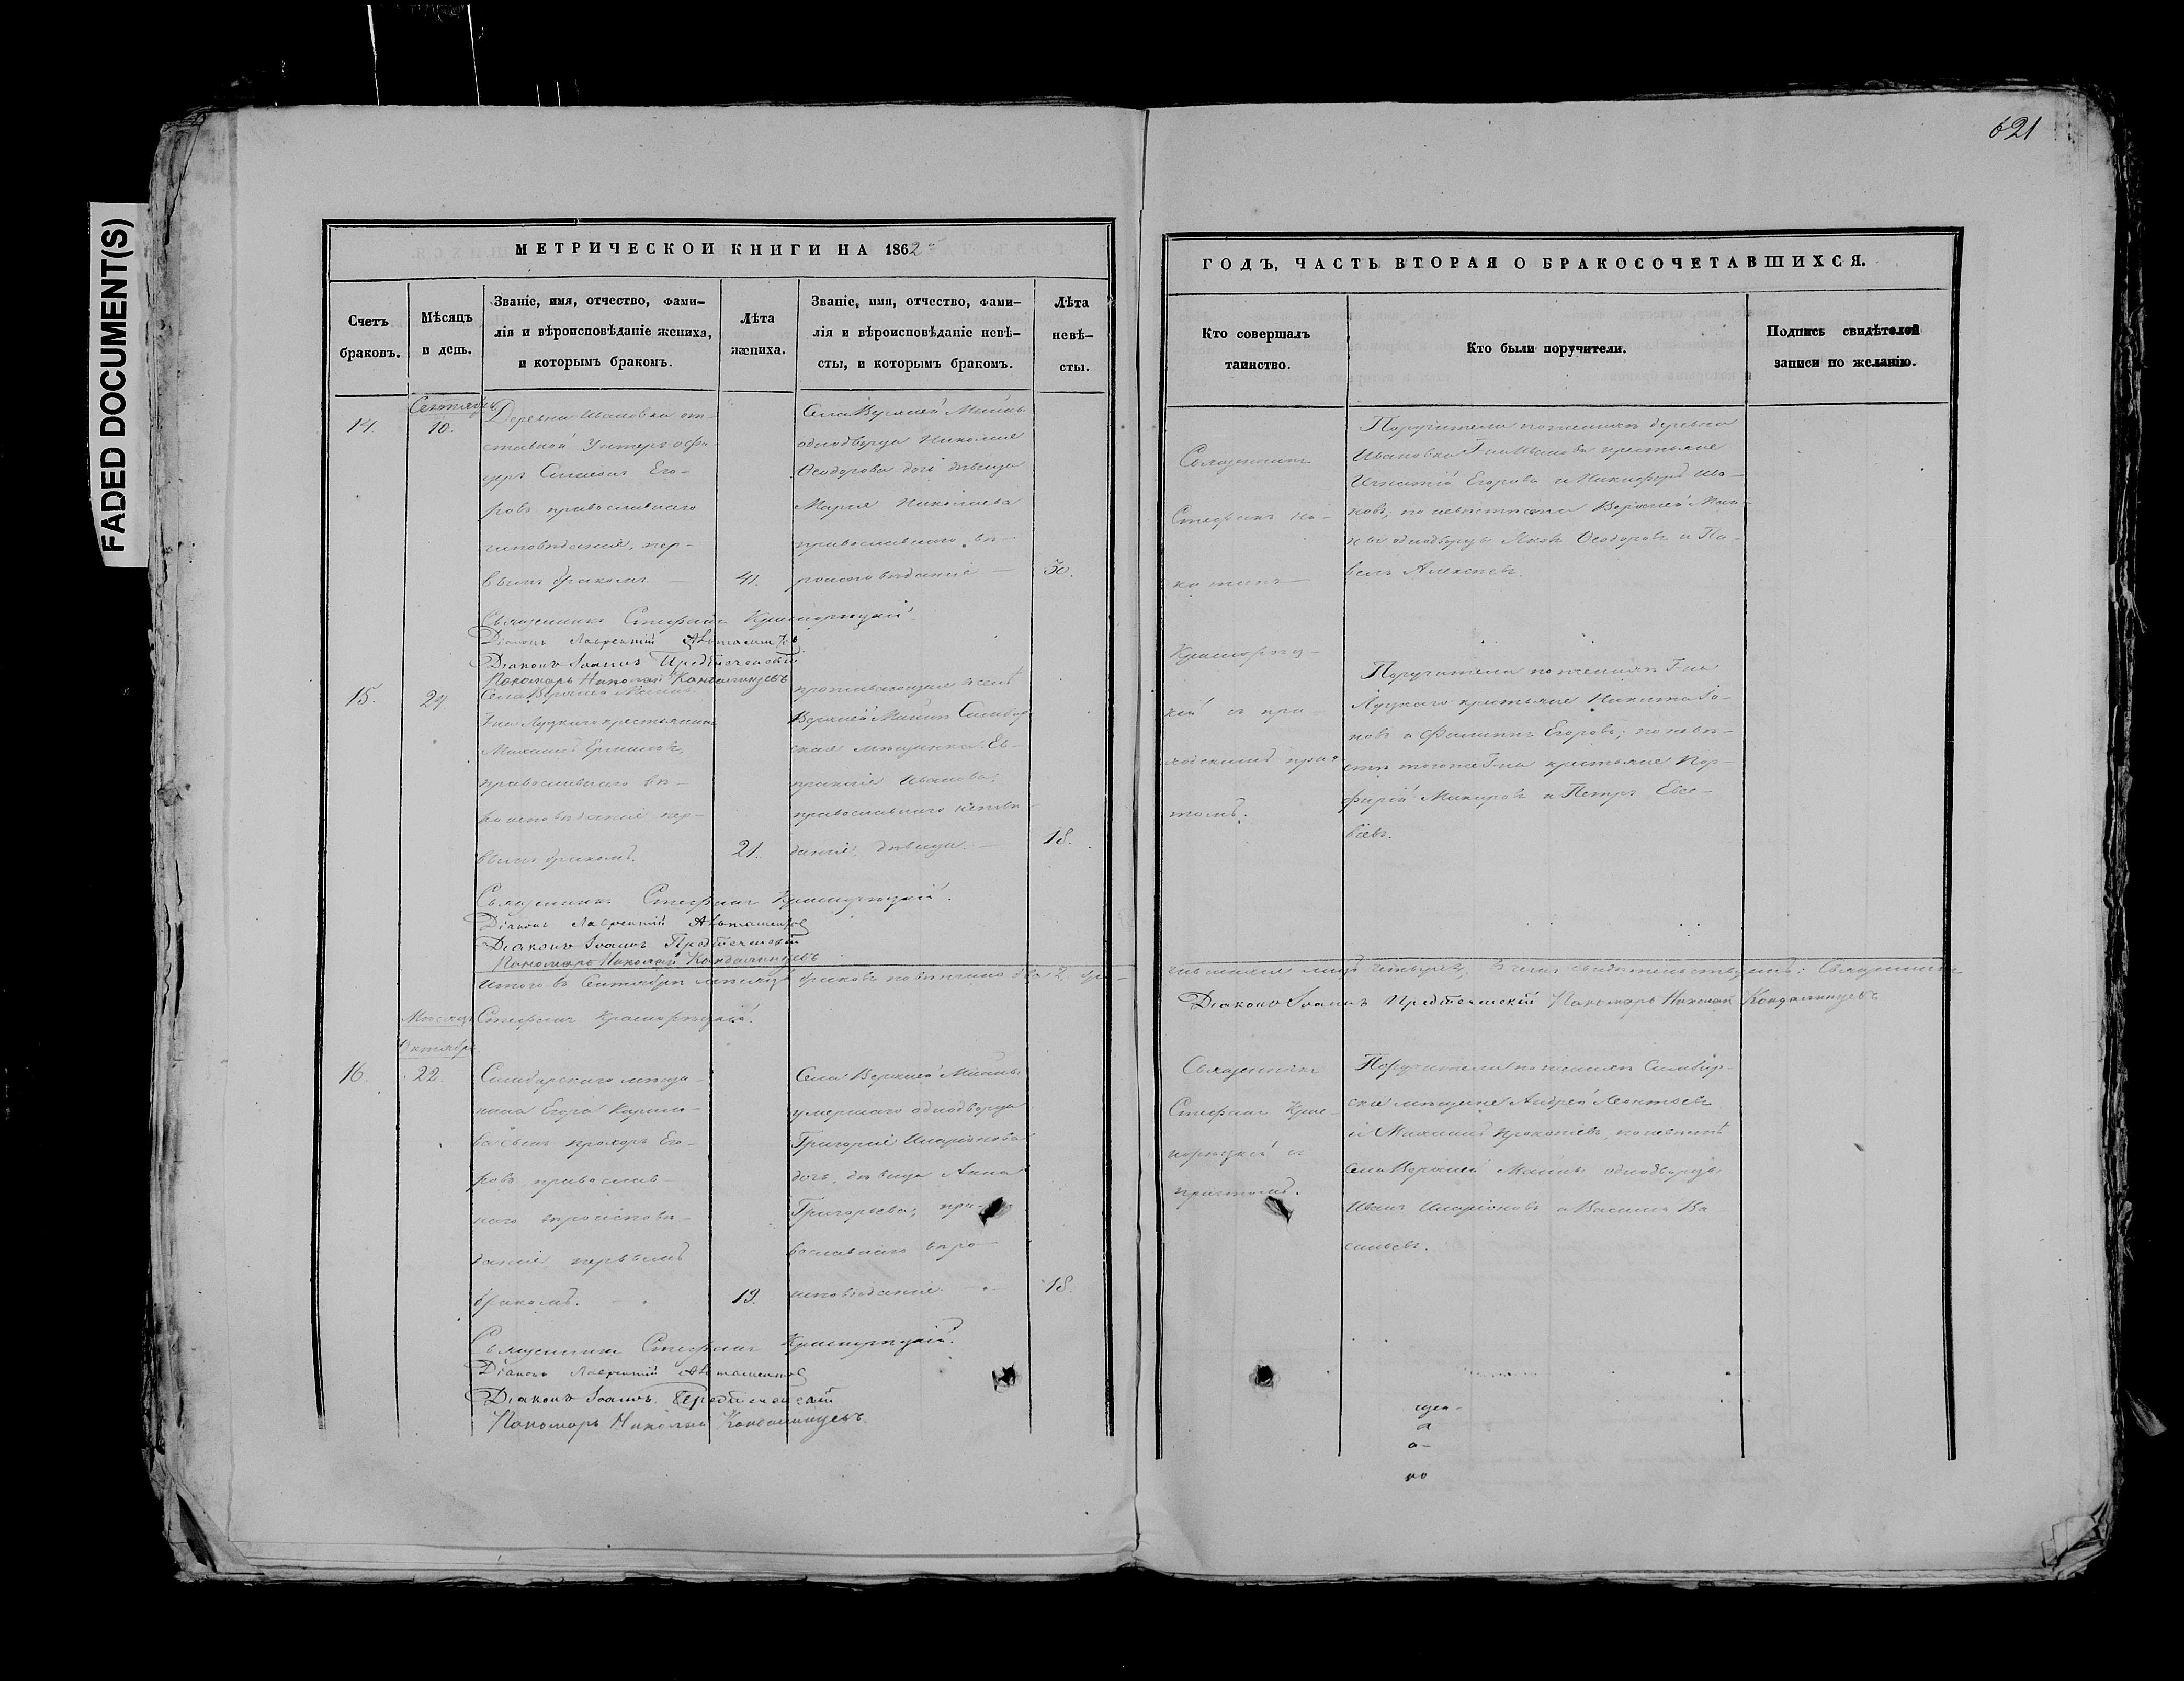 FADED DOCUMENT(S)
621
МЕТРИЧЕСКОЙ КНИГИ НА 1862
ГОДЪ, ЧАСТЬ ВТОРАЯ О БРАКОСОЧЕТАВШИХСЯ.
Счетъ
браковъ.
Мѣсяцъ
и день.
Званіе, имя, отчество, фами-
лія и вѣроисповѣданіе жениха,
и которымъ бракомъ.
Лѣта
жениха.
Званіе, имя, отчество, фами-
лія и вѣроисповѣданіе невѣ-
сты, и которымъ бракомъ.
Лѣта
невѣ-
сты.
Кто совершалъ
таинство.
Кто были поручители.
Подпись свидѣтелей
записи по желанію.
14.
Сентября
10.
Деревни Ивановки от-
ставной Унтеръ офи-
церъ Симеонъ Его-
ровъ православнаго
исповѣданія, пер-
вымъ бракомъ
41.
Села Верхней Маины
однодворца Николая
Ѳеодорова дочь дѣвица
Марія Николаева
православнаго вѣ-
роисповѣданія
30.
Священникъ
Стефанъ
Поручители по женихѣ деревни
Ивановки Г-на Иванова крестьяне
Игнатій Егоровъ и Никифоръ Ива-
новъ; по невѣстѣ села Верхней Маи-
ны однодворцы Яковъ Ѳеодоровъ и Па-
велъ Алексѣевъ.
Священникъ Стефанъ Красногорецкій
Діаконъ Лаврентій
Діаконъ Іоаннъ Предтеченскій
Пономарь Николай Кандалинцевъ
15.
24.
Села Верхней Маины
Г-на Луцкаго крестьянинъ
Максимъ
православнаго вѣ-
роисповѣданія пер-
вымъ бракомъ.
21.
проживающая въ селѣ
Верхней Маинѣ Симбир-
ская мѣщанка Ев-
праксія Иванова;
православнаго исповѣ-
данія, дѣвица.
18.
кій съ при-
ходскимъ прич-
томъ.
Поручители по женихѣ Г-на
Луцкаго крестьяне Никита
и Филиппъ Егоровъ; по невѣ-
стѣ тогоже Г-на крестьяне Пор-
фирій Макаровъ и Петръ Евсе-
віевъ.
Священникъ Стефанъ
Діаконъ Лаврентій
Діаконъ Іоаннъ Предтеченскій
Пономарь Николай Кандалинцевъ
Итого въ Сентябрѣ мѣсяцѣ браковъ повѣнчано два 2.
лицъ четыре 4, въ чемъ свидѣтельствуемъ: Священникъ
Стефанъ
Діаконъ Іоаннъ Предтеченскій Пономарь Николай Кандалинцевъ
Мѣсяцъ
Октябрь
16.
22.
Симбирскаго мѣща-
нина Егора
сынъ Прохоръ Его-
ровъ православ-
наго вѣроисповѣ-
данія первымъ
бракомъ.
19.
Села Верхней Маины
умершаго однодворца
Григорія Иларіонова
дочь, дѣвица Анна
Григорьева, пра-
вославнаго вѣро-
исповѣданія.
18.
Священникъ
Стефанъ
причтомъ.
Поручители по женихѣ Симбир-
скіе мѣщане Андрей Леонтьевъ
и Максимъ Прокопіевъ, по невѣстѣ
села Верхней Маины однодворцы
Иванъ Иларіоновъ и Василій Ва
сильевъ.
Священникъ Стефанъ
Діаконъ Лаврентій
Діаконъ Іоаннъ Предтеченскій
Пономарь Николай Кандалинцевъ